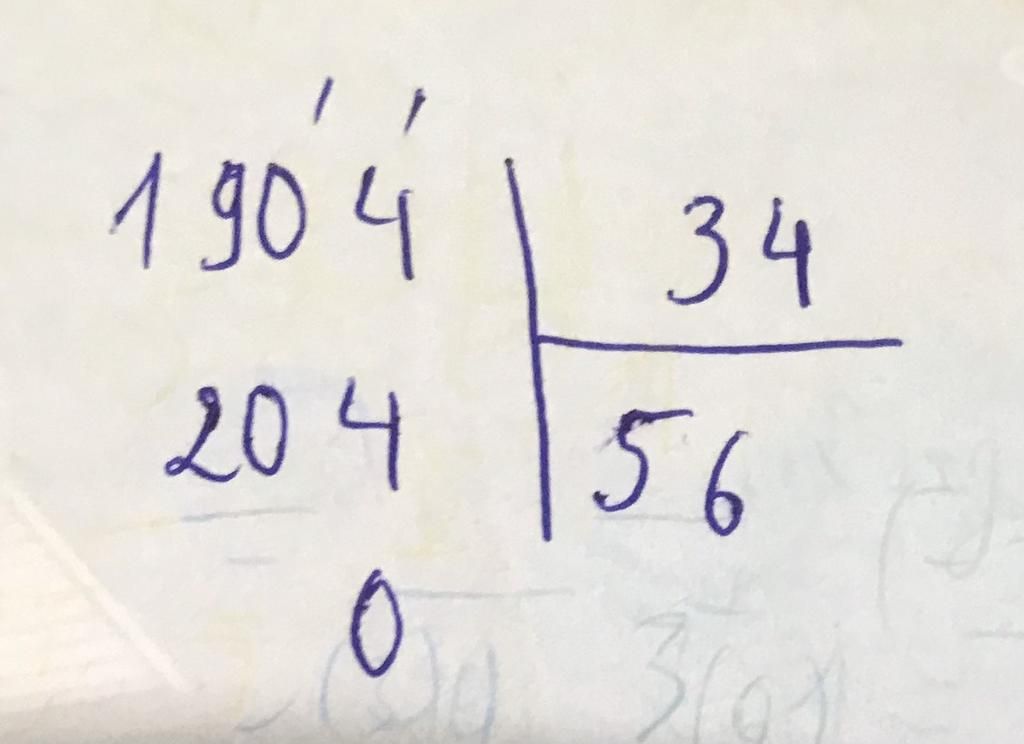 1904 34
204 56
0